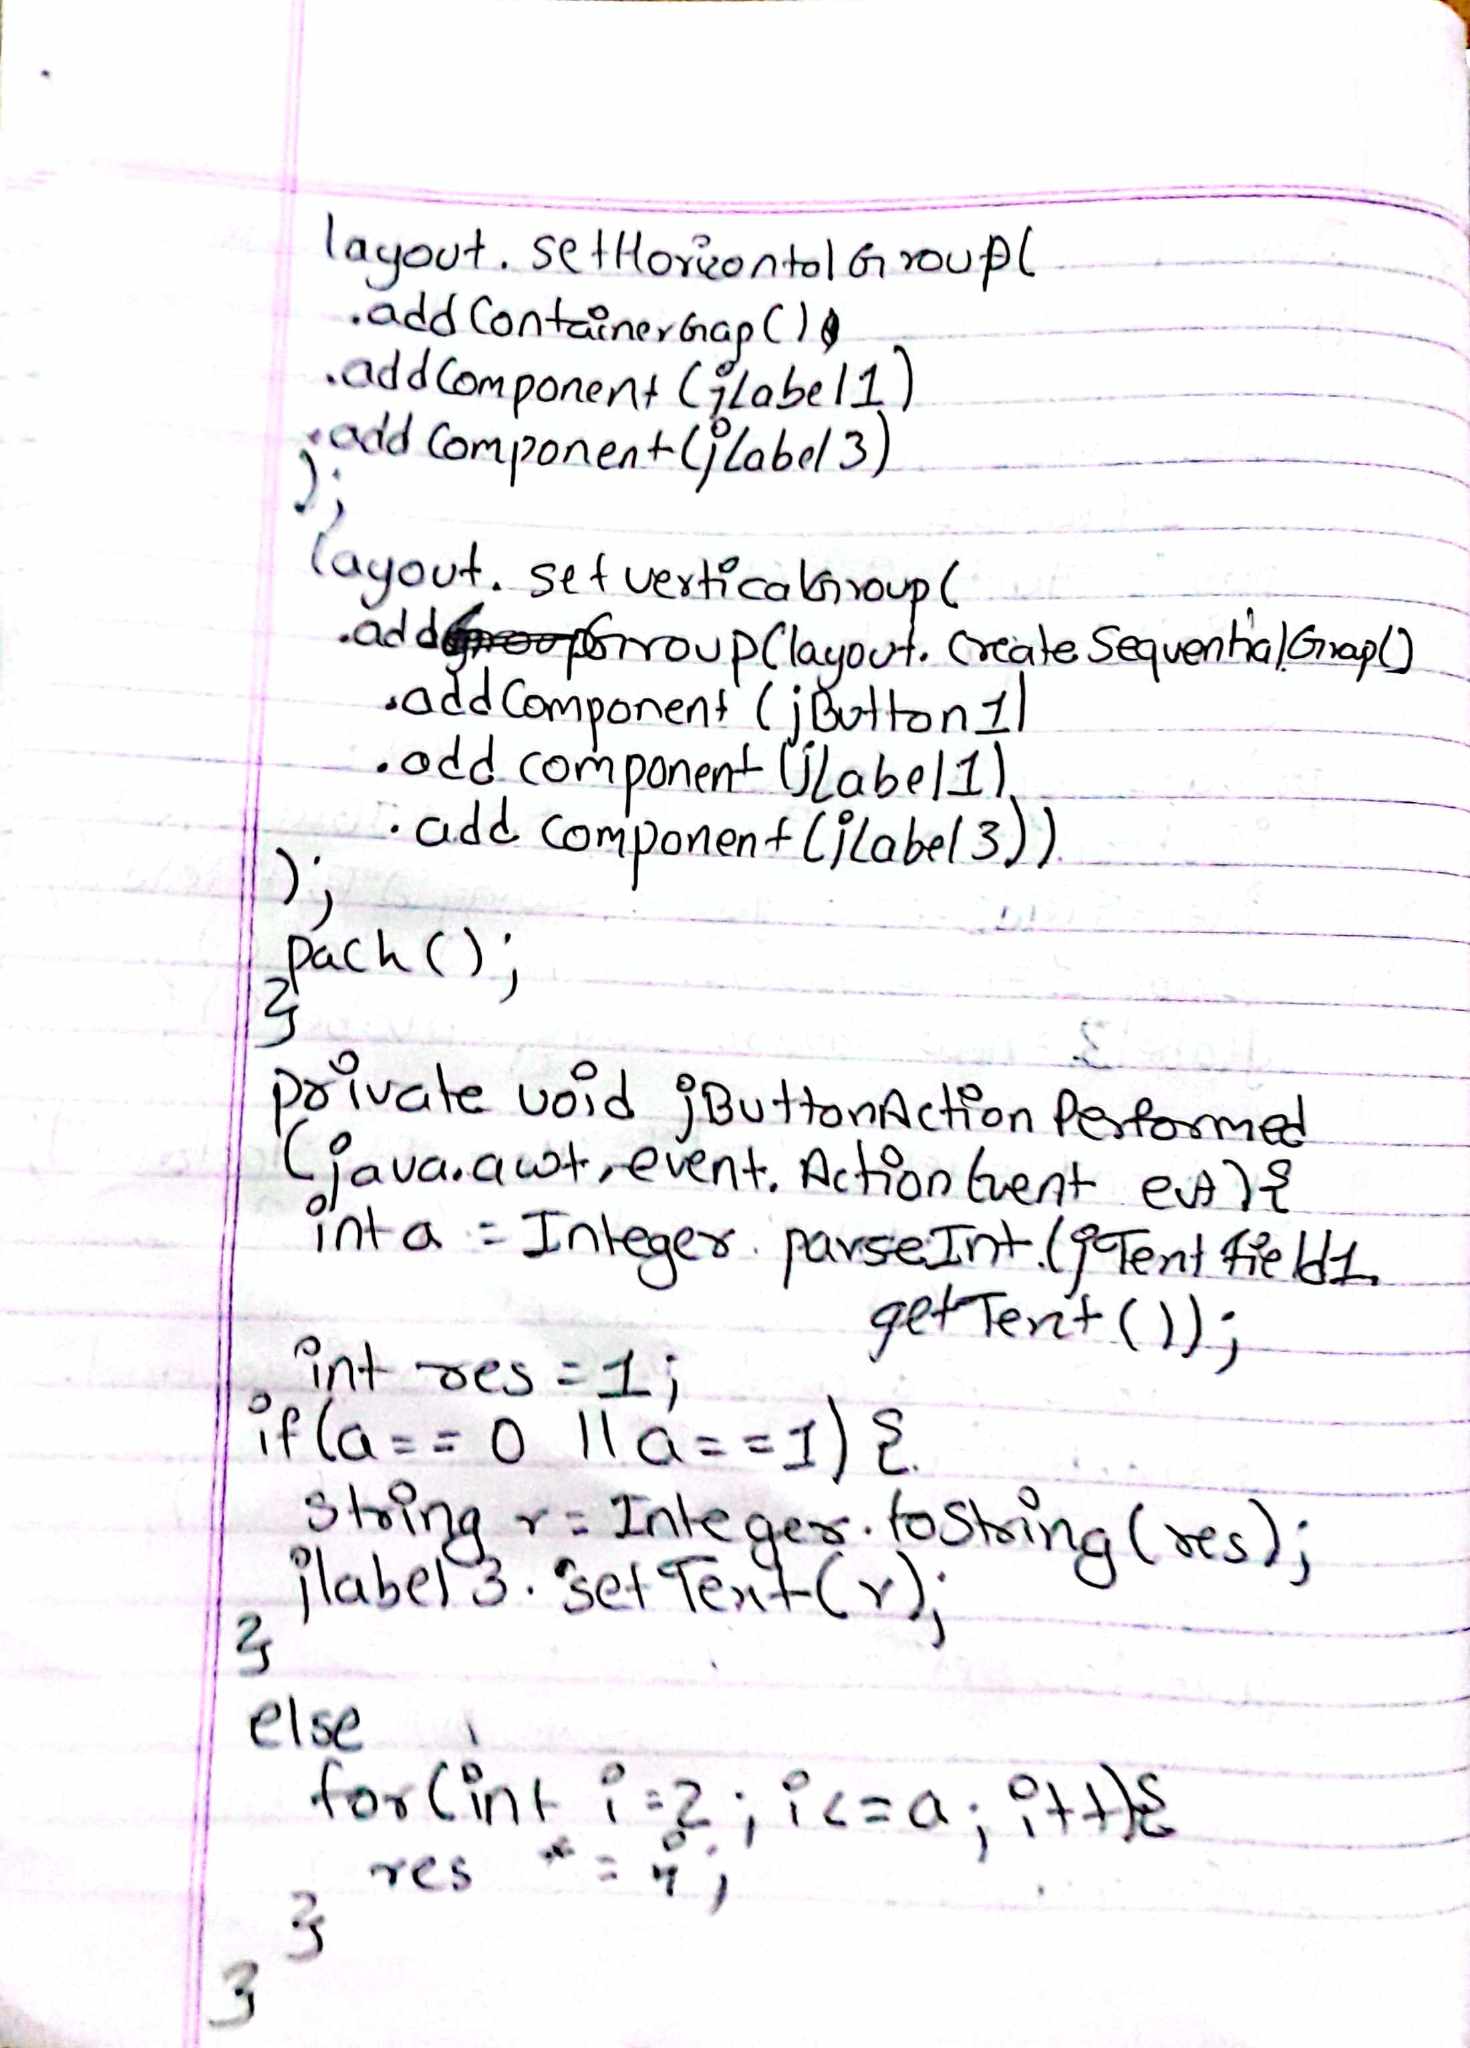 layout. setHorizontolGroup(
.addContainerGap()
.addComponent (jLabel1)
.add Component(jLabel3)
);
layout. setverticalGroup(
.addGroup(layout. Create SequentialGrap()
.addComponent (jButton1)
.add component (jLabel1)
. add component(jLabel3))
);
pack ();
}
private void jButtonAction Performed
(java.awt.event. ActionEvent evt){
int a = Integer. parseInt.(jTextfield1.
getText());
int res = 1;
if(a== 0 ||a==1) {
string r= Integer. toString(res);
jlabel 3. setText(r);
}
else
for(int i=2; i<=a; i++){
res *= i;
}
}